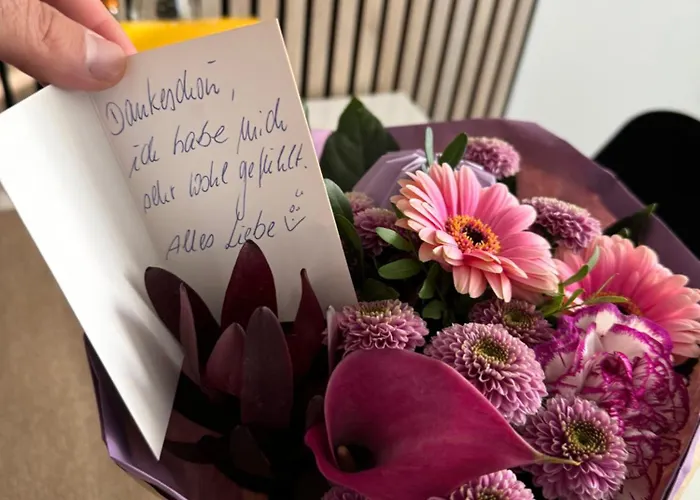 Dankeschön,
ich habe mich
sehr wohl gefühlt.
Alles Liebe